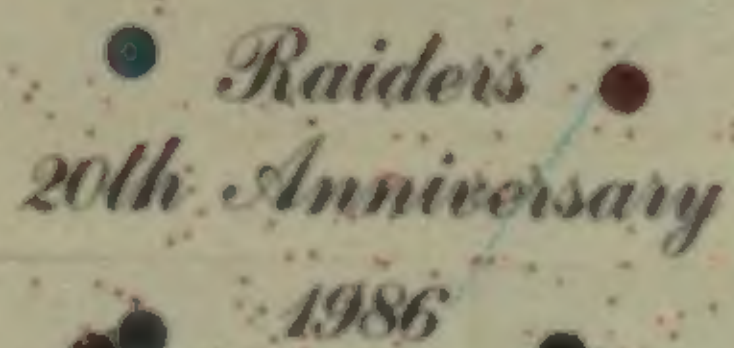 Raiders'
20th Anniversary
1986